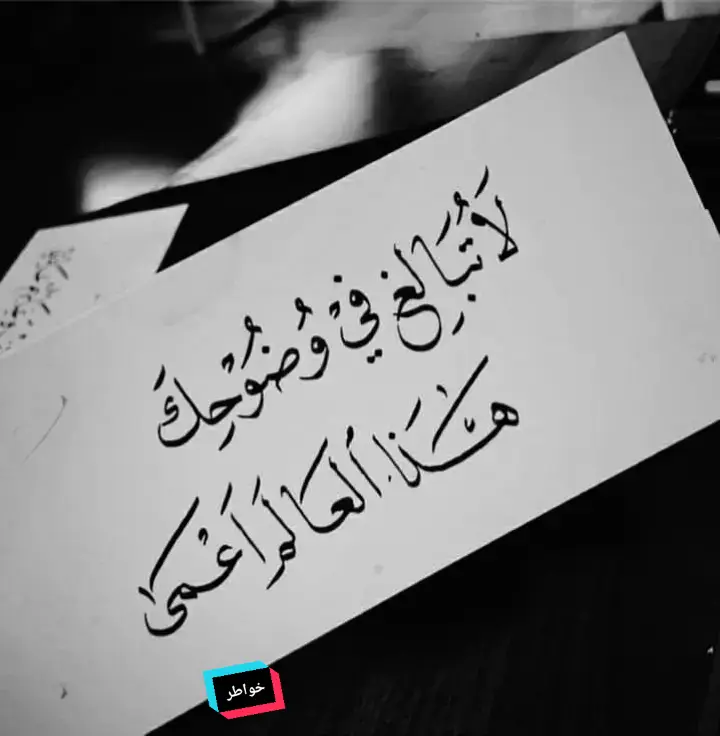 لَا تُبَالِغ فِيْ وُضُوْحِكَ
هَذَا العَالَم أَعْمَى
خواطر